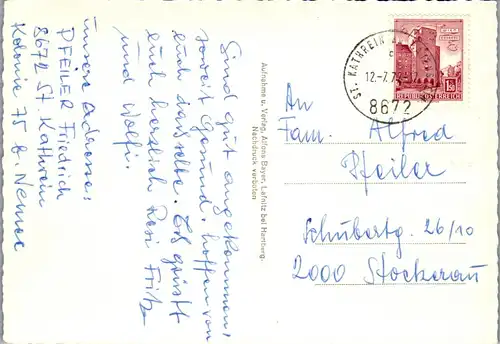 Sind gut angekommen,
soweit Gesund, hoffen von
euch dasselbe. Es grüsst
euch herzlich Rosi Fritz
und Wolfi.
Unsere Adresse:
PFEILER Friedrich
8672 St. Kathrein
Kolonie 75 b.
Aufnahme u. Verlag, Alfons Bayer, Lafnitz bei Hartberg.
Nachdruck verboten
ST. KATHREIN A.
12.-7.
8672
REPUBLIK ÖSTERREICH
1.50
An
Fam. Alfred
Pfeiler
Schubertg. 26/10
2000 Stockerau